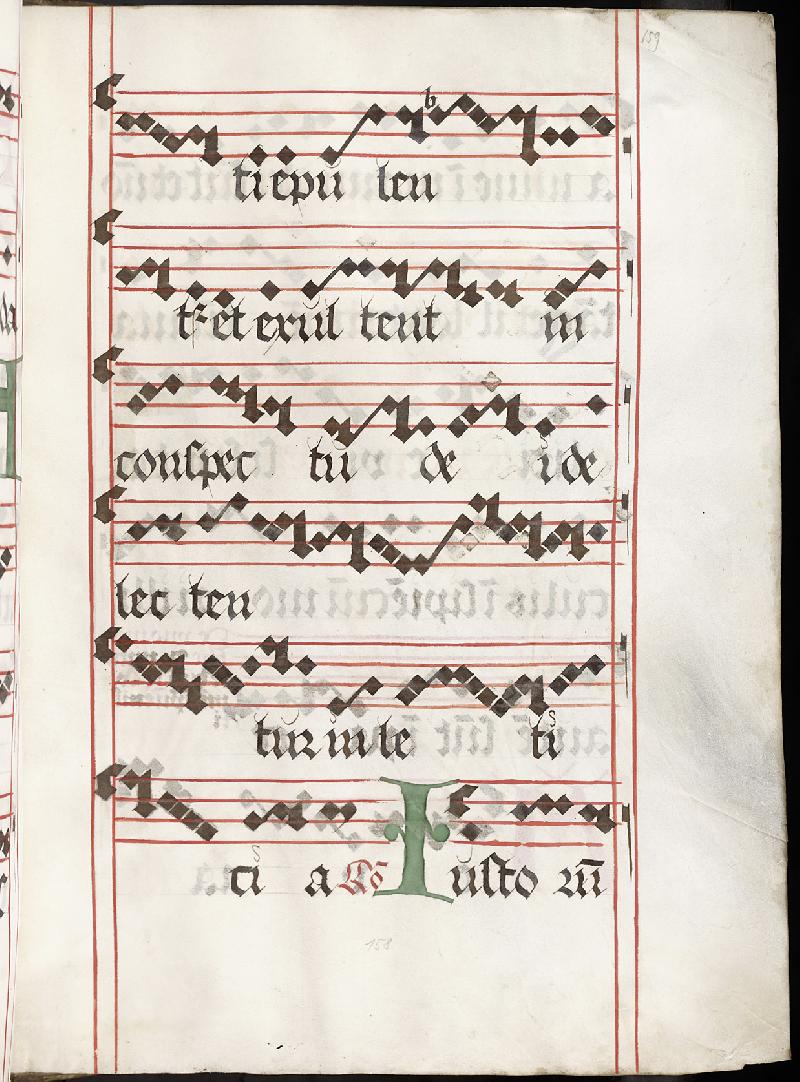 159
ti epu len
t̄ et exul tent in
conspec tu de i de
lec ten
tur in le ti
ci a Co Iusto rū
158